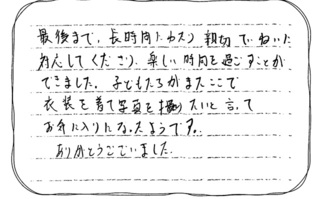 最後まで、長時間にわたり親切でねいに
対応してくださり、楽しい時間を過ごすことが
できました。子どもたちがまたここで
衣装を着て写真を撮りたいと言って
お気に入りになったようです。
ありがとうございました。